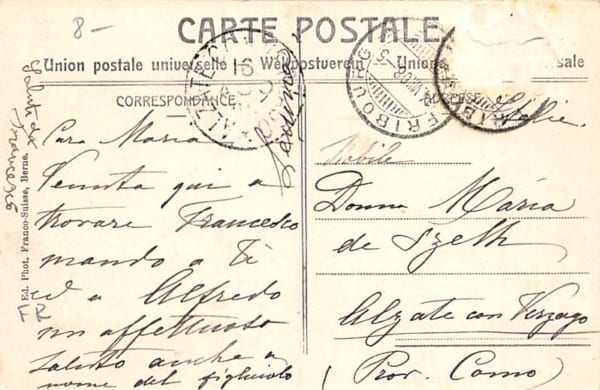 8-
CARTE POSTALE
Union postale universelle Weltpostverein Union sale
CORRESPONDANCE
FRIBOURG
FRIBOURG
Italie.
Cara Maria
Venuta qui a
trovare Francesco
mando a Ti
ed a Alfredo
un affettuoso
saluto anche a
nome del figliuolo
Saluti da
Francesco
Ed. Phot. Franco-Suisse, Berne.
Nobile
Donna Maria
de Szeth
Alzate con Verzago
(Prov. Como)